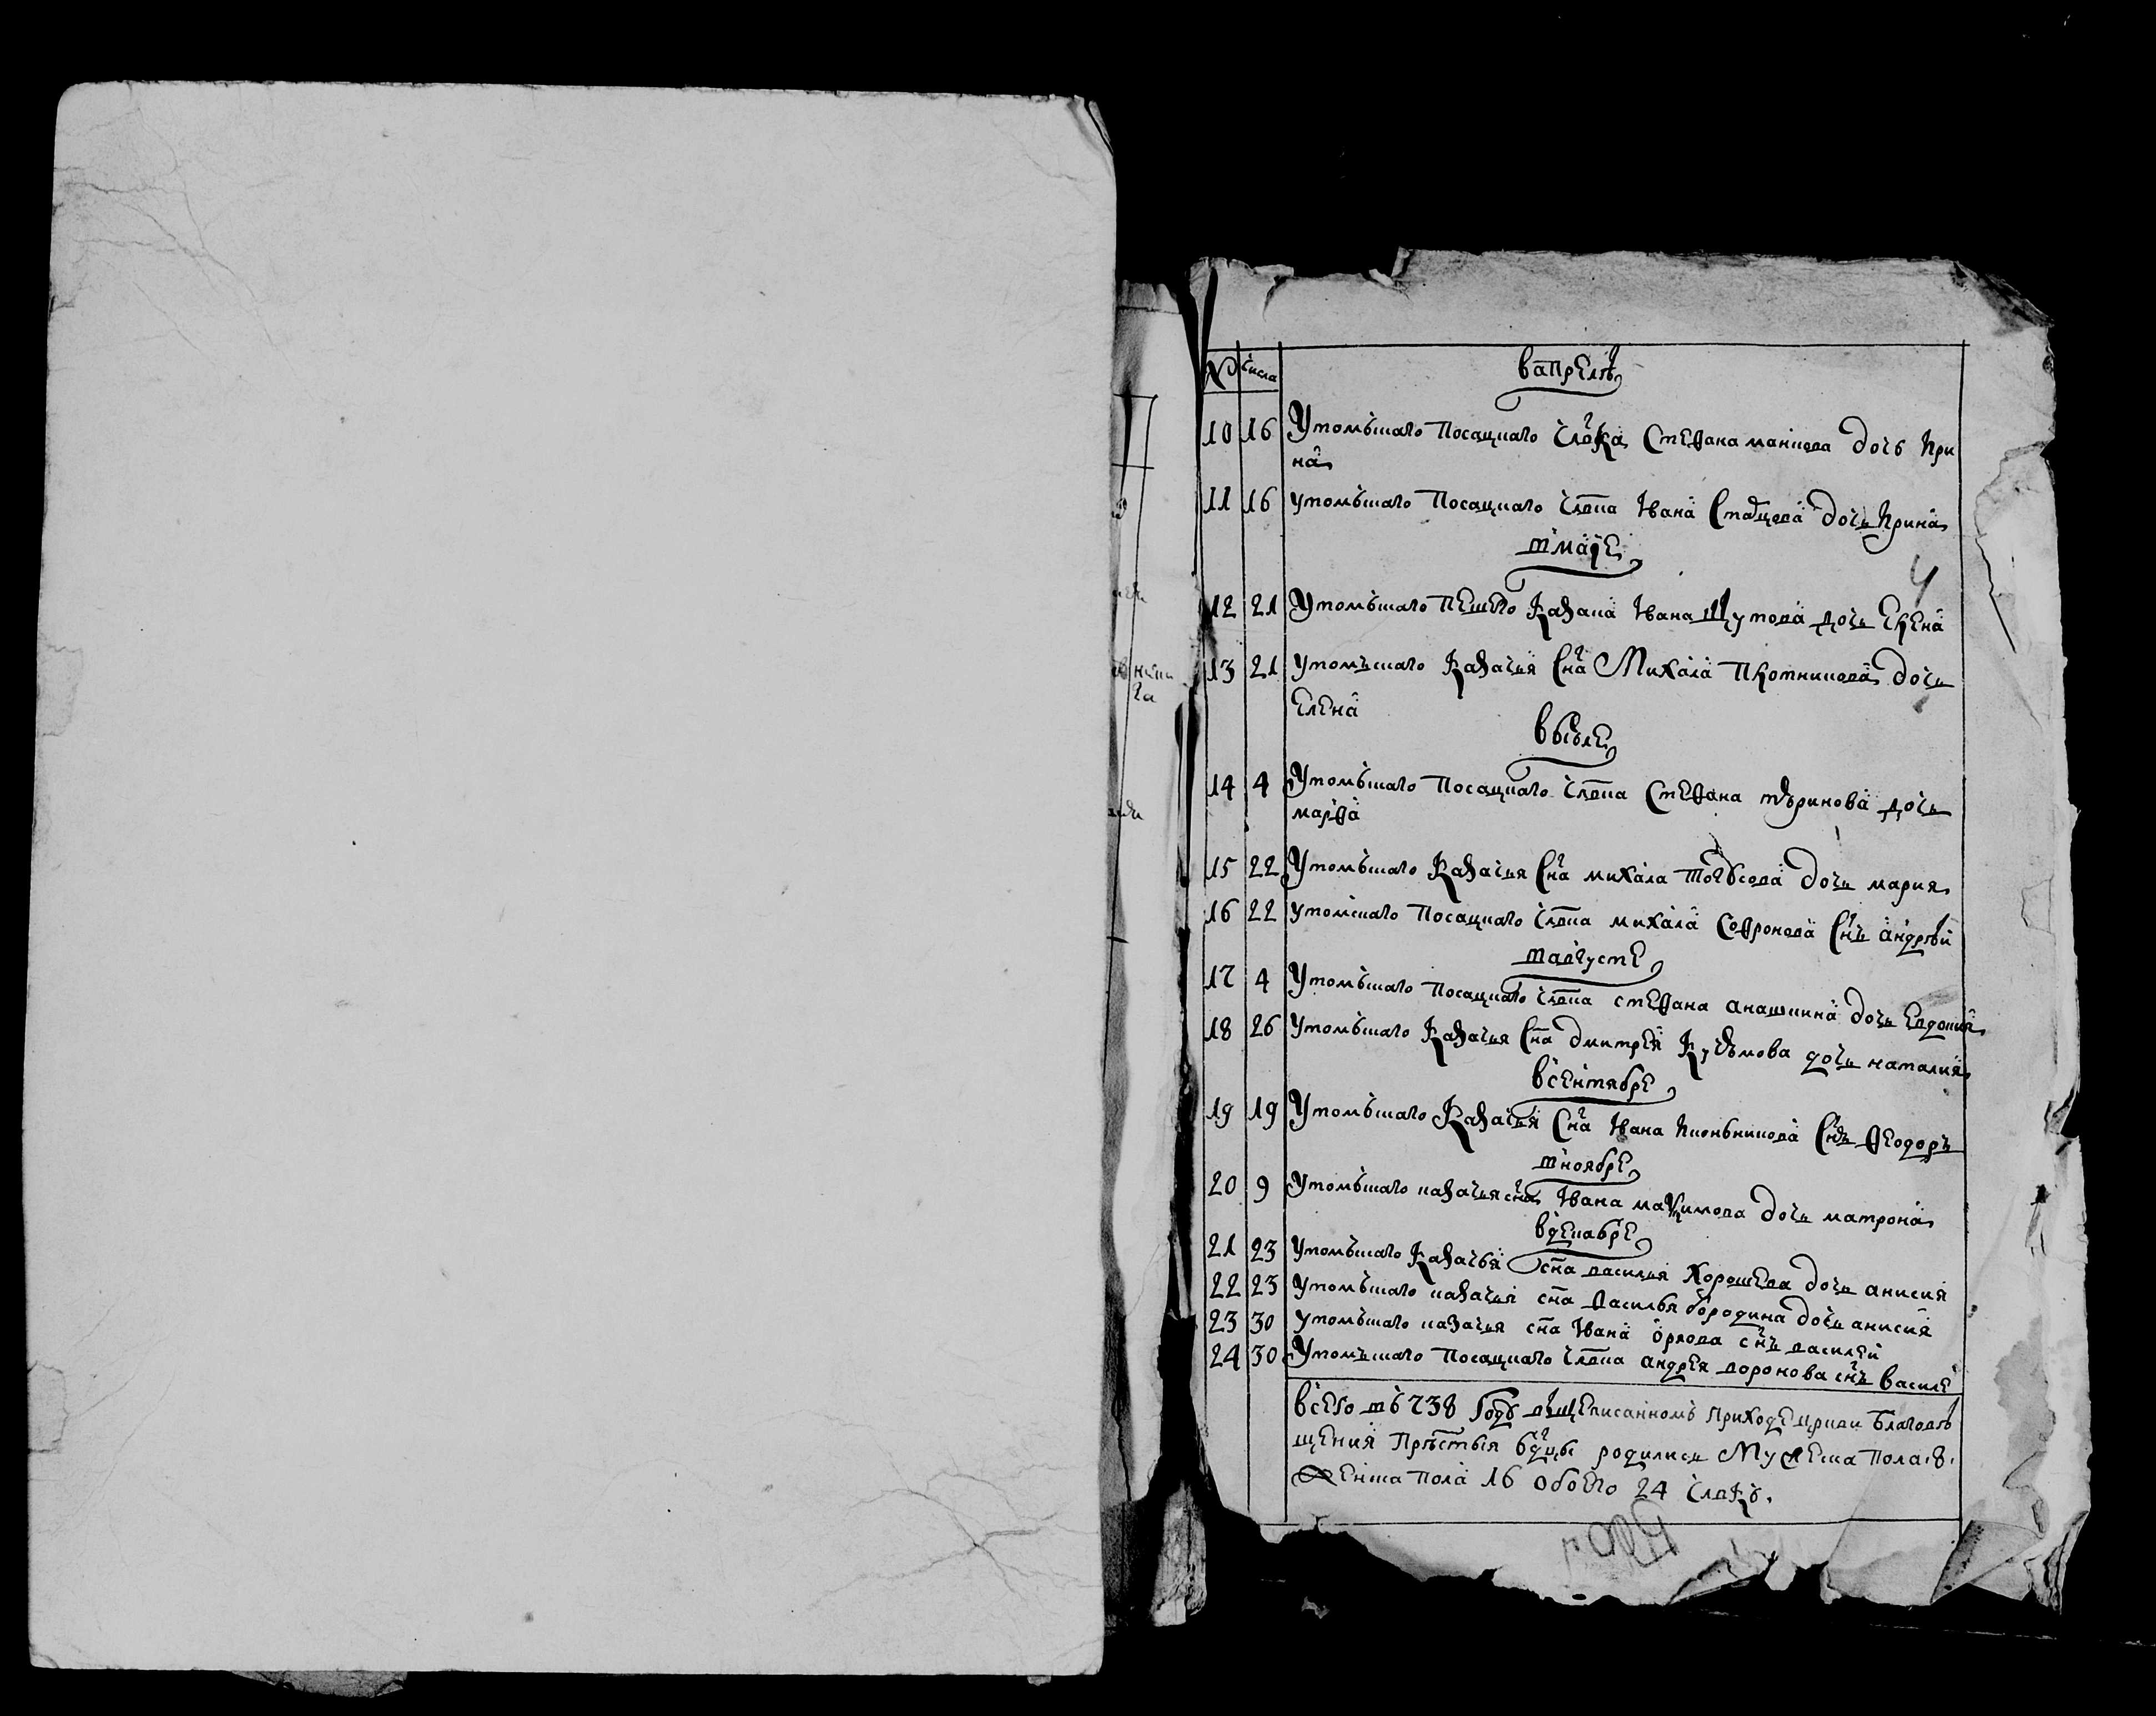 № числа вапрелѣ
10 16 Утомъшаго посацкаго члвка Стефана манцова дочь Ири
на
11 16 утомъшаго посацкаго члвка Ивана дочь Ирина
вмаіе
4
12 21 Утомъшаго пешего казака Ивана Шутова дочь Елена
13 21 утомъшаго казачья сна Михаила Плотникова дочь
Елена
выюле
14 4 Утомъшаго посацкаго члвка Стефана дочь
марфа
15 22 Утомъшаго казачья сна михаила дочь мария
16 22 утомшаго посацкаго члвка михаила Софронова снъ андрѣй
вавгусте
17 4 Утомъшаго посацкаго члвка стефана анашкина дочь Евдокия
18 26 Утомъшаго казачья сна дмитрея Кузьмова дочь наталия
всентябре
19 19 Утомъшаго казачья сна Ивана снъ Феодоръ
вноябре
20 9 Утомъшаго казачья сна Ивана макимова дочь матрона
вдекабре
21 23 Утомъшаго казачья сна василья Хорошева дочь анисия
22 23 Утомъшаго казачья сна василья бородина дочь анисия
23 30 утомъшаго казачья сна Ивана орлова снъ василей
24 30 Утомъшаго посацкаго члвка андрея воронова снъ василе
всего в 1738 году вышеписанномъ приходе цркви Благовѣ
щения Прѣстыя бдцы родились Мужеска пола 8.
Женска пола 16 обоего 24 члвкъ.